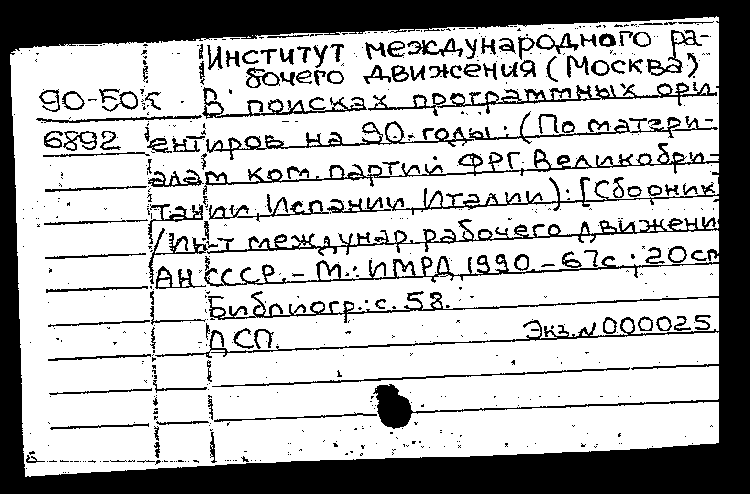 Институт международного ра-
бочего движения (Москва)
90-50к В поисках программных ори-
6892 ентиров на 90-годы: (По матери-
алам ком. партий ФРГ, Великобри-
тании, Испании, Италии): [Сборник]
/Ин-т междунар. рабочего движени
АН СССР. - М.: ИМРД, 1990. - 67с ; 20см
Библиогр.: с. 58.
ДСП. Экз. № 000025.